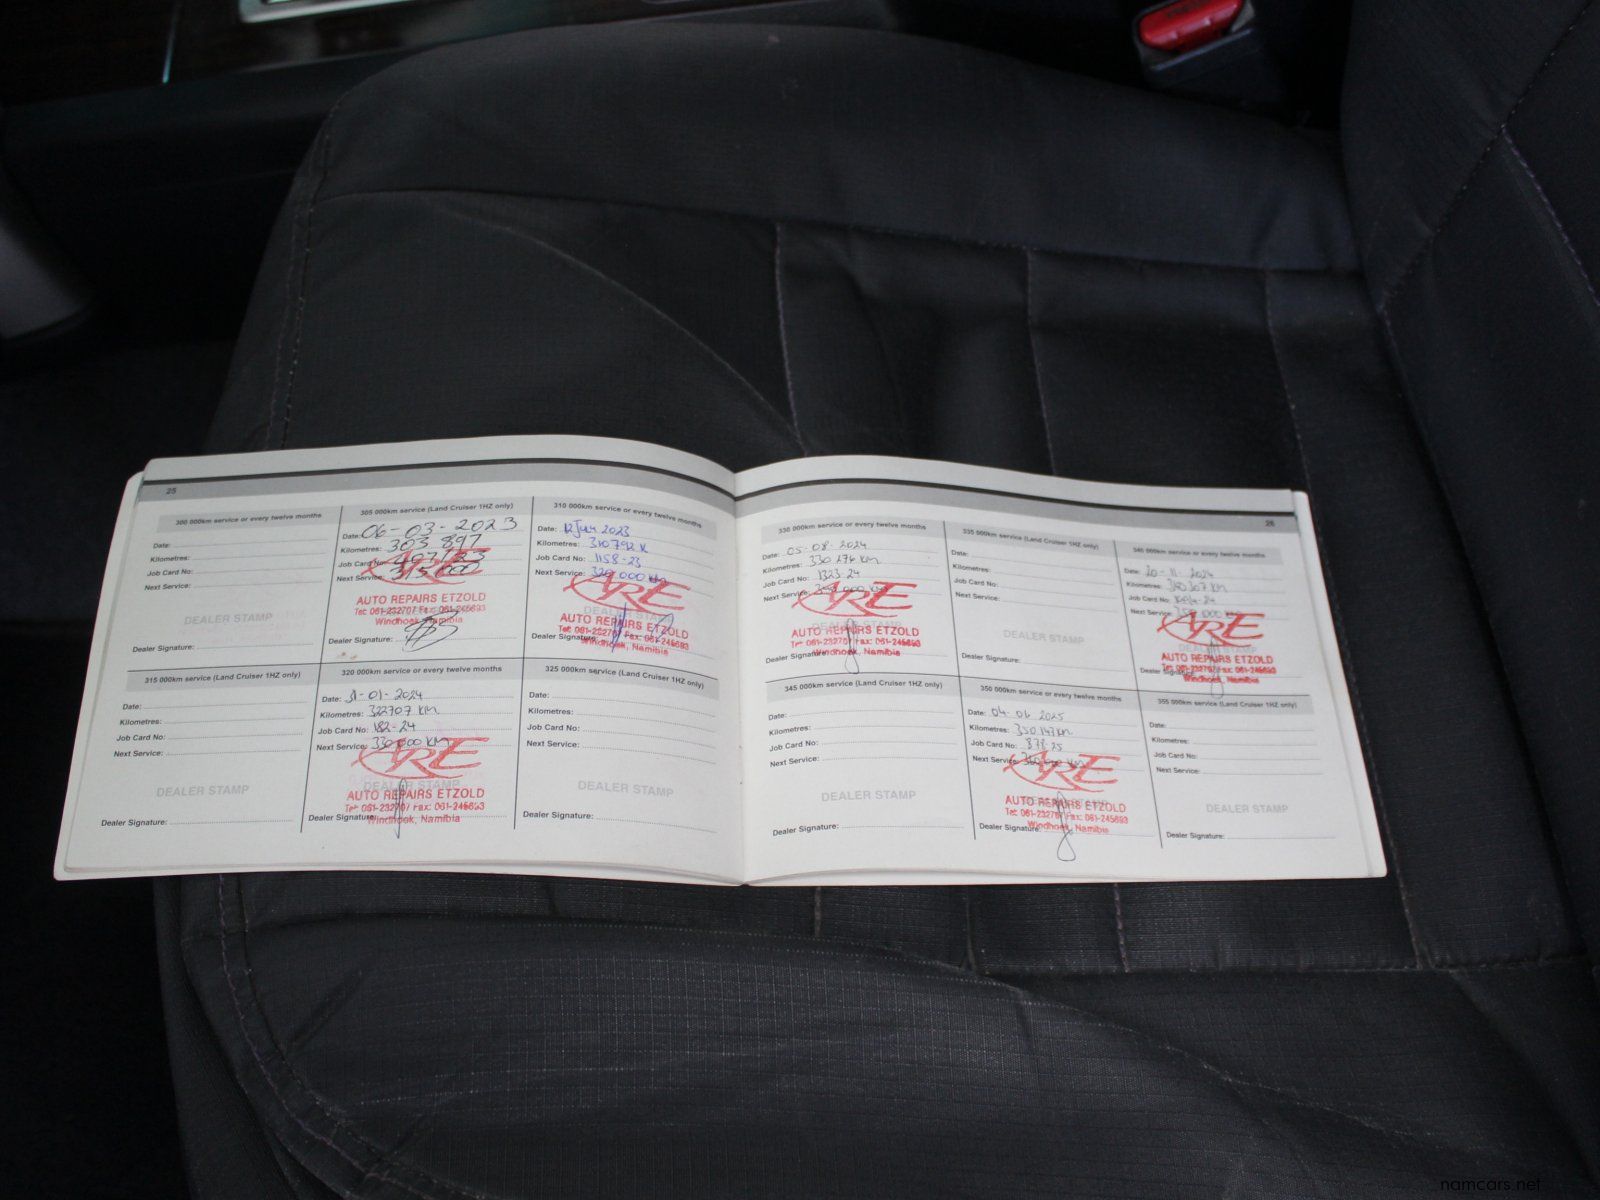 25
300 000km service or every twelve months
Date:
Kilometres:
Job Card No:
Next Service:
DEALER STAMP
Dealer Signature:
305 000km service (Land Cruiser 1HZ only)
Date: 06-03-2023
Kilometres: 303 897
Job Card No:
Next Service: 315000
ARE
AUTO REPAIRS ETZOLD
Tel: 061-232707 Fax: 061-245693
Windhoek, Namibia
Dealer Signature:
310 000km service or every twelve months
Date: 12 Jul 2023
Kilometres: 310792 K
Job Card No: 1158-23
Next Service: 320 000 km
ARE
DEALER STAMP
AUTO REPAIRS ETZOLD
Tel: 061-232707 Fax: 061-245693
Dealer Signature: Windhoek, Namibia
315 000km service (Land Cruiser 1HZ only)
Date:
Kilometres:
Job Card No:
Next Service:
DEALER STAMP
Dealer Signature:
320 000km service or every twelve months
Date: 31-01-2024
Kilometres: 322707 Km
Job Card No: 182-24
Next Service: 330 000 Km
ARE
DEALER STAMP
AUTO REPAIRS ETZOLD
Tel: 061-232707 Fax: 061-245693
Dealer Signature: Windhoek, Namibia
325 000km service (Land Cruiser 1HZ only)
Date:
Kilometres:
Job Card No:
Next Service:
DEALER STAMP
Dealer Signature:
26
330 000km service or every twelve months
Date: 05-08-2024
Kilometres: 330 276 Km
Job Card No: 1323-24
Next Service:
ARE
DEALER STAMP
AUTO REPAIRS ETZOLD
Tel: 061-232707 Fax: 061-245693
Dealer Signature: Windhoek, Namibia
335 000km service (Land Cruiser 1HZ only)
Date:
Kilometres:
Job Card No:
Next Service:
DEALER STAMP
Dealer Signature:
340 000km service or every twelve months
Date: 20-11-2024
Kilometres: 340 307 Km
Job Card No:
Next Service: 350 000 Km
ARE
DEALER STAMP
AUTO REPAIRS ETZOLD
Tel: 061-232707 Fax: 061-245693
Dealer Windhoek, Namibia
345 000km service (Land Cruiser 1HZ only)
Date:
Kilometres:
Job Card No:
Next Service:
DEALER STAMP
Dealer Signature:
350 000km service or every twelve months
Date: 04-06 2025
Kilometres: 350 147 Km
Job Card No: 878 25
Next Service: 360 000 Km
ARE
AUTO REPAIRS ETZOLD
Tel: 061-232707 Fax: 061-245693
Dealer Signature: Windhoek, Namibia
355 000km service (Land Cruiser 1HZ only)
Date:
Kilometres:
Job Card No:
Next Service:
DEALER STAMP
Dealer Signature:
namcars.net